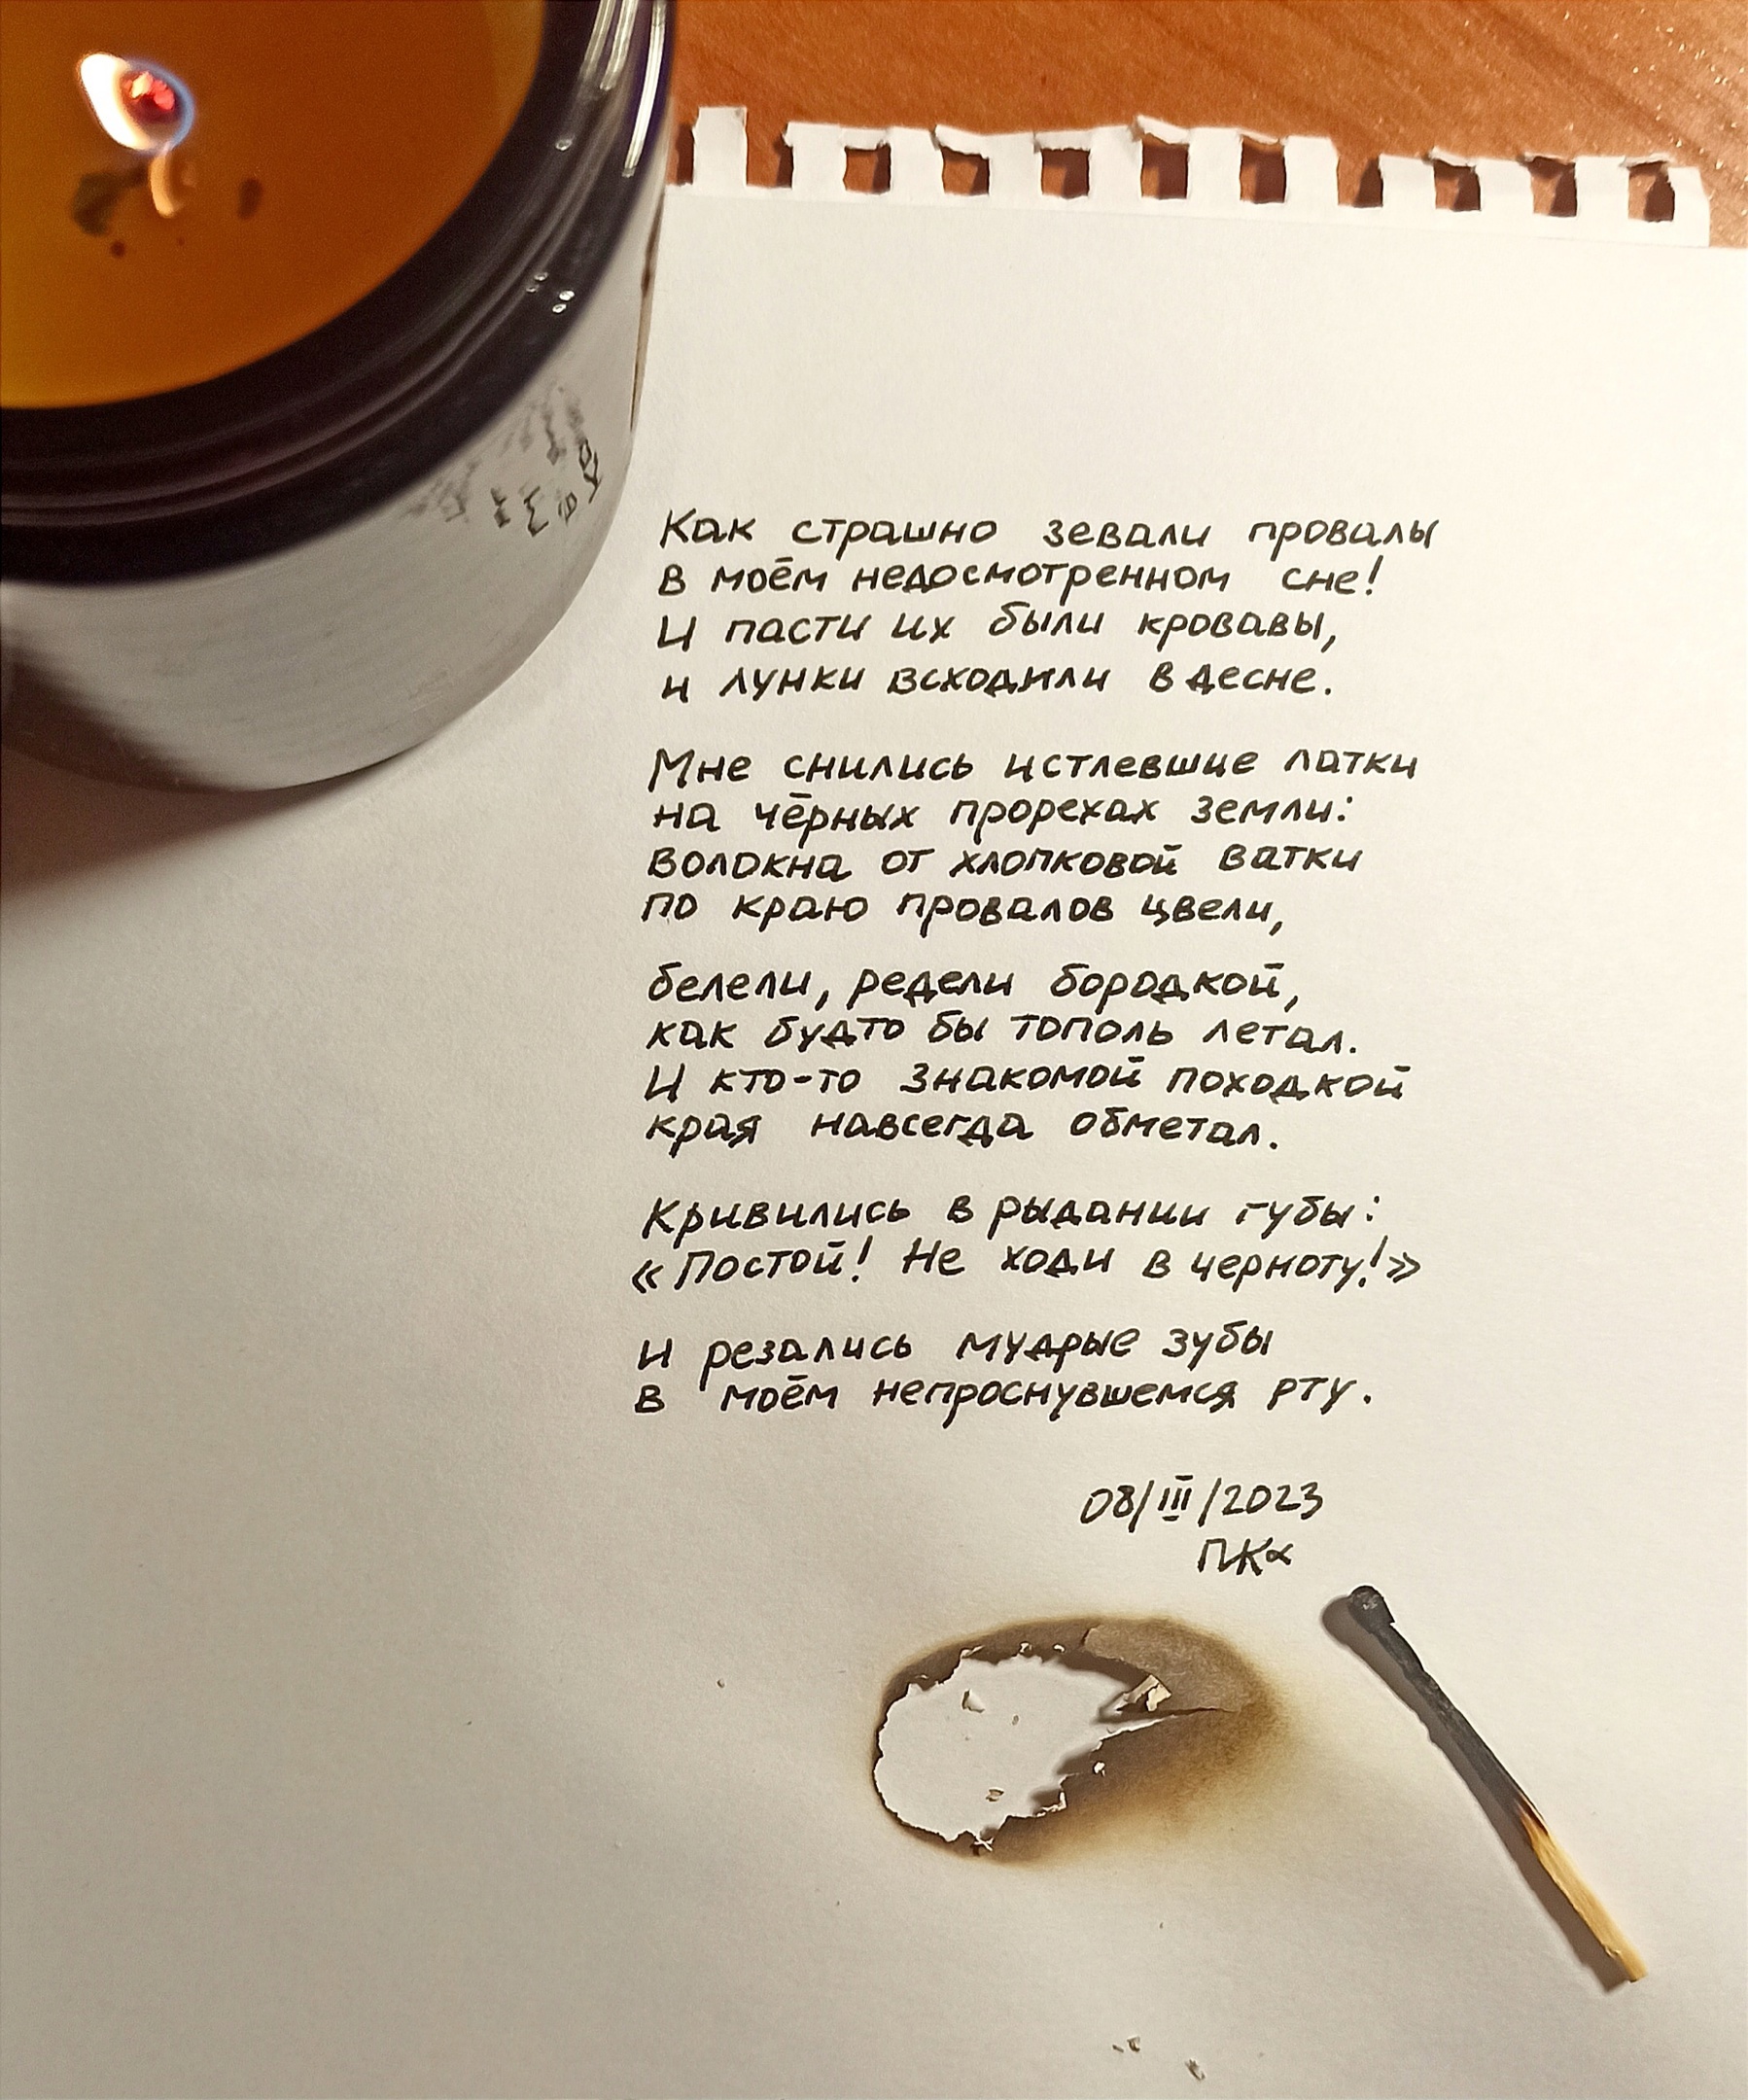 Как страшно зевали провалы
в моём недосмотренном сне!
И пасти их были кровавы,
и лунки всходили в десне.
Мне снились истлевшие латки
на чёрных прорехах земли:
волокна от хлопковой ватки
по краю провалов цвели,
белели, редели бородкой,
как будто бы тополь летал.
И кто-то знакомой походкой
края навсегда обметал.
Кривились в рыдании губы:
«Постой! Не ходи в черноту!»
И резались мудрые зубы
в моём непроснувшемся рту.
08/III/2023
ПКα